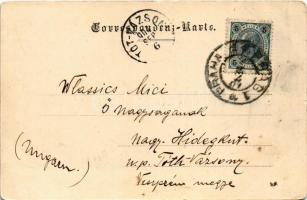 Correspondenz-Karte.
TÓT-VÁZSONY
PRAHA
Wlassics Mici
Ő Nagyságának
Nagy Hidegkut.
(Ungarn.)
u.p. Tóth-Vázsony
Veszprém megye